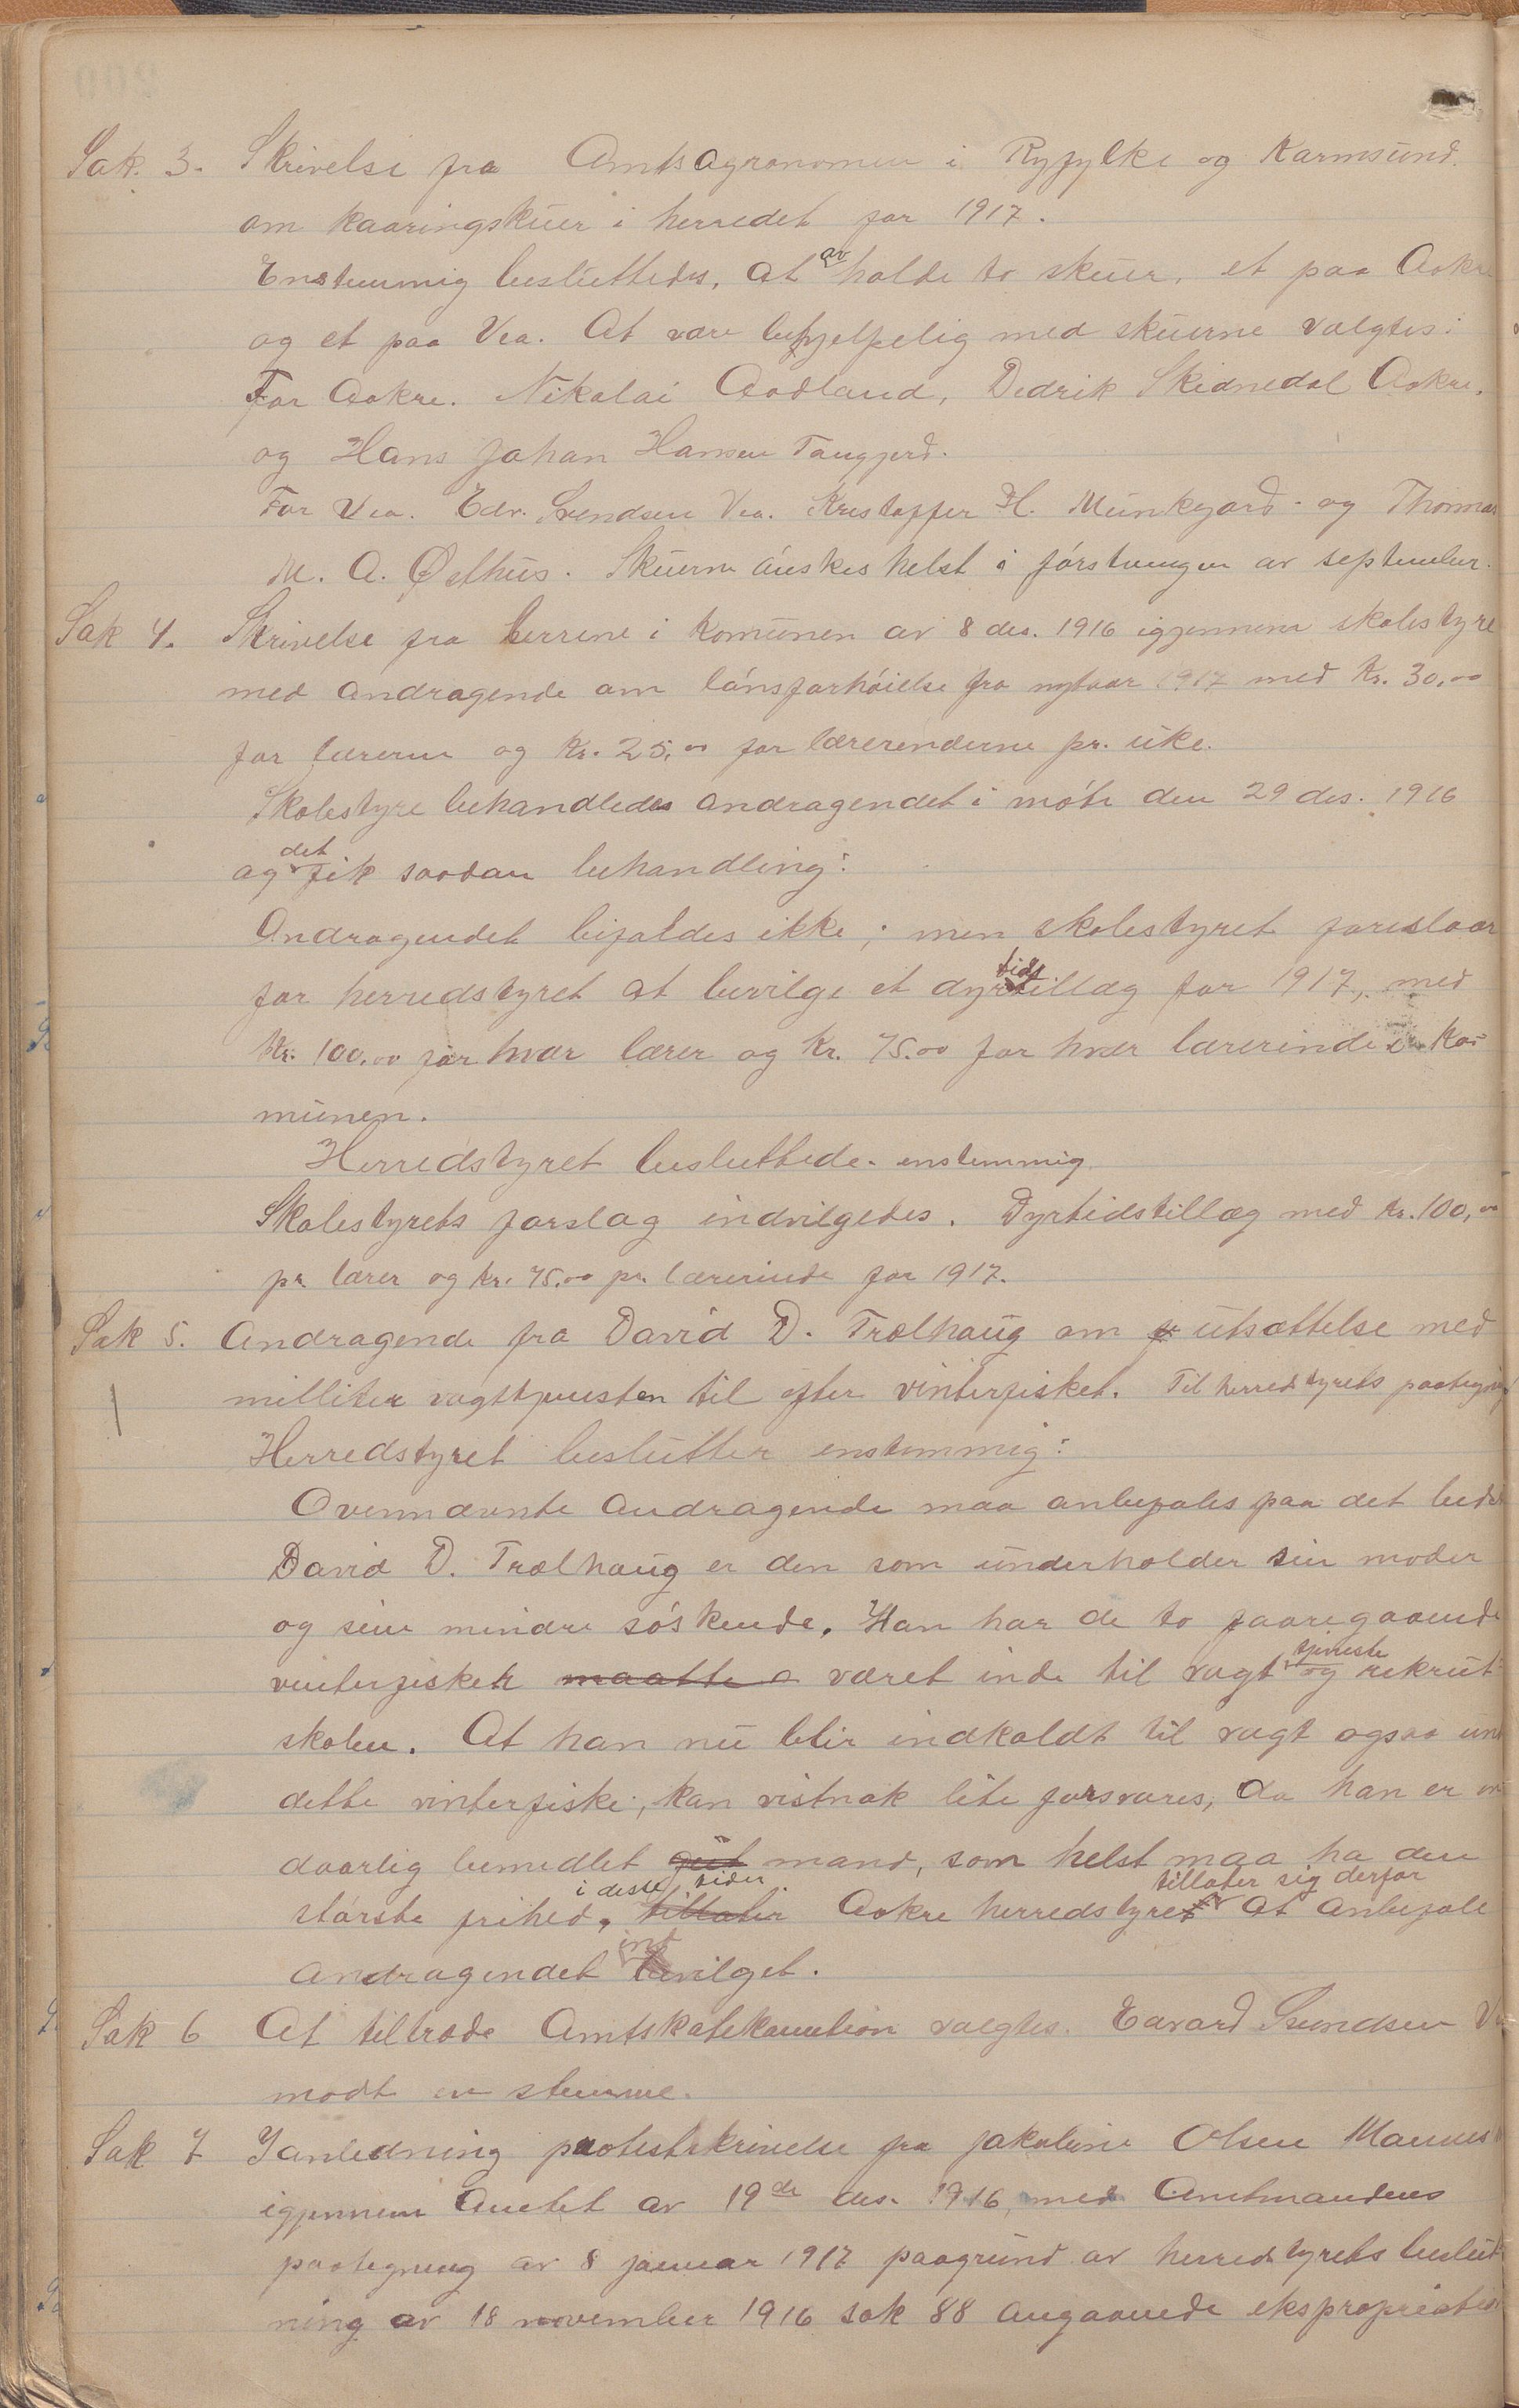 Sak. 3. Skrivelse fra Amtsagronomen i Ryfylke og Karmsund.
om kaaringskuer i herredet for 1917.
Enstemmig besluttedes, at av holde to skuer, et paa Aakre
og et paa Vea. At være behjelpelig med skuerne valgtes:
For Aakre. Nikolai Aadland, Dedrik Skidnedal Aakre.
og Hans Johan Hansen Tangjerd.
For Vea. Edv. Svendsen Vea. Kristoffer H. Munkejord og Thomas
M. A. Østhus. Skuerne ønskes helst i førstningen av september.
Sak 4. Skrivelse fra lærerne i Komunen av 8 des. 1916 igjennem skolestyre
med andragende om lønsforhøielse fra nytaar 1917 med Kr. 30,00
for lærerne og Kr. 25,00 for lærerinderne pr. uke.
Skolestyre behandledes andragendet i møte den 29 des. 1916
og det fik saadan behandling:
Andragendet bifaldes ikke; men skolestyret foreslaar
for herredstyret at bevilge et dyrtidstillæg for 1917, med
Kr. 100,00 for hver lærer og Kr. 75.00 for hver lærerinde i Ko-
munen.
Herredstyret besluttede enstemmig
Skolestyrets forslag indvilgedes. Dyrtidstillæg med Kr. 100,00
pr. lærer og kr. 75,00 pr. lærerinde for 1917.
Sak 5. Andragende fra David D. Trælhaug om utsættelse med
militær vagttjenesten til efter vinterfisket. Til herredstyrets paategning
Herredstyret beslutter enstemmig:
Ovennævnte andragende maa anbefales paa det bedste
David D. Trælhaug er den som underholder sin moder
og sine mindre søskende. Han har de to foregaaende
vinterfisker maatte været inde til vagttjeneste og rekrut
skolen. At han nu blir indkaldt til vagt ogsaa un
dette vinterfiske, kan vistnok lite forsvares, da han er en
daarlig bemedlet gut mand, som helst maa ha den
største frihed i disse tider. tillater Aakre herredstyre tillater sig derfor at anbefale
andragendet indvilget.
Sak 6 At tiltræde Amtskatekomition valgtes. Edvard Svendsen V
modt en stemme.
Sak 7 I anledning protestskrivelse fra Jakobine Olsen Mannes
igjennem Amtet av 19de des. 1916, med Amtmandens
paategning av 8 januar 1917 paagrund av herredstyrets beslut
ning av 18 november 1916 sak 88 angaaende ekspropriation